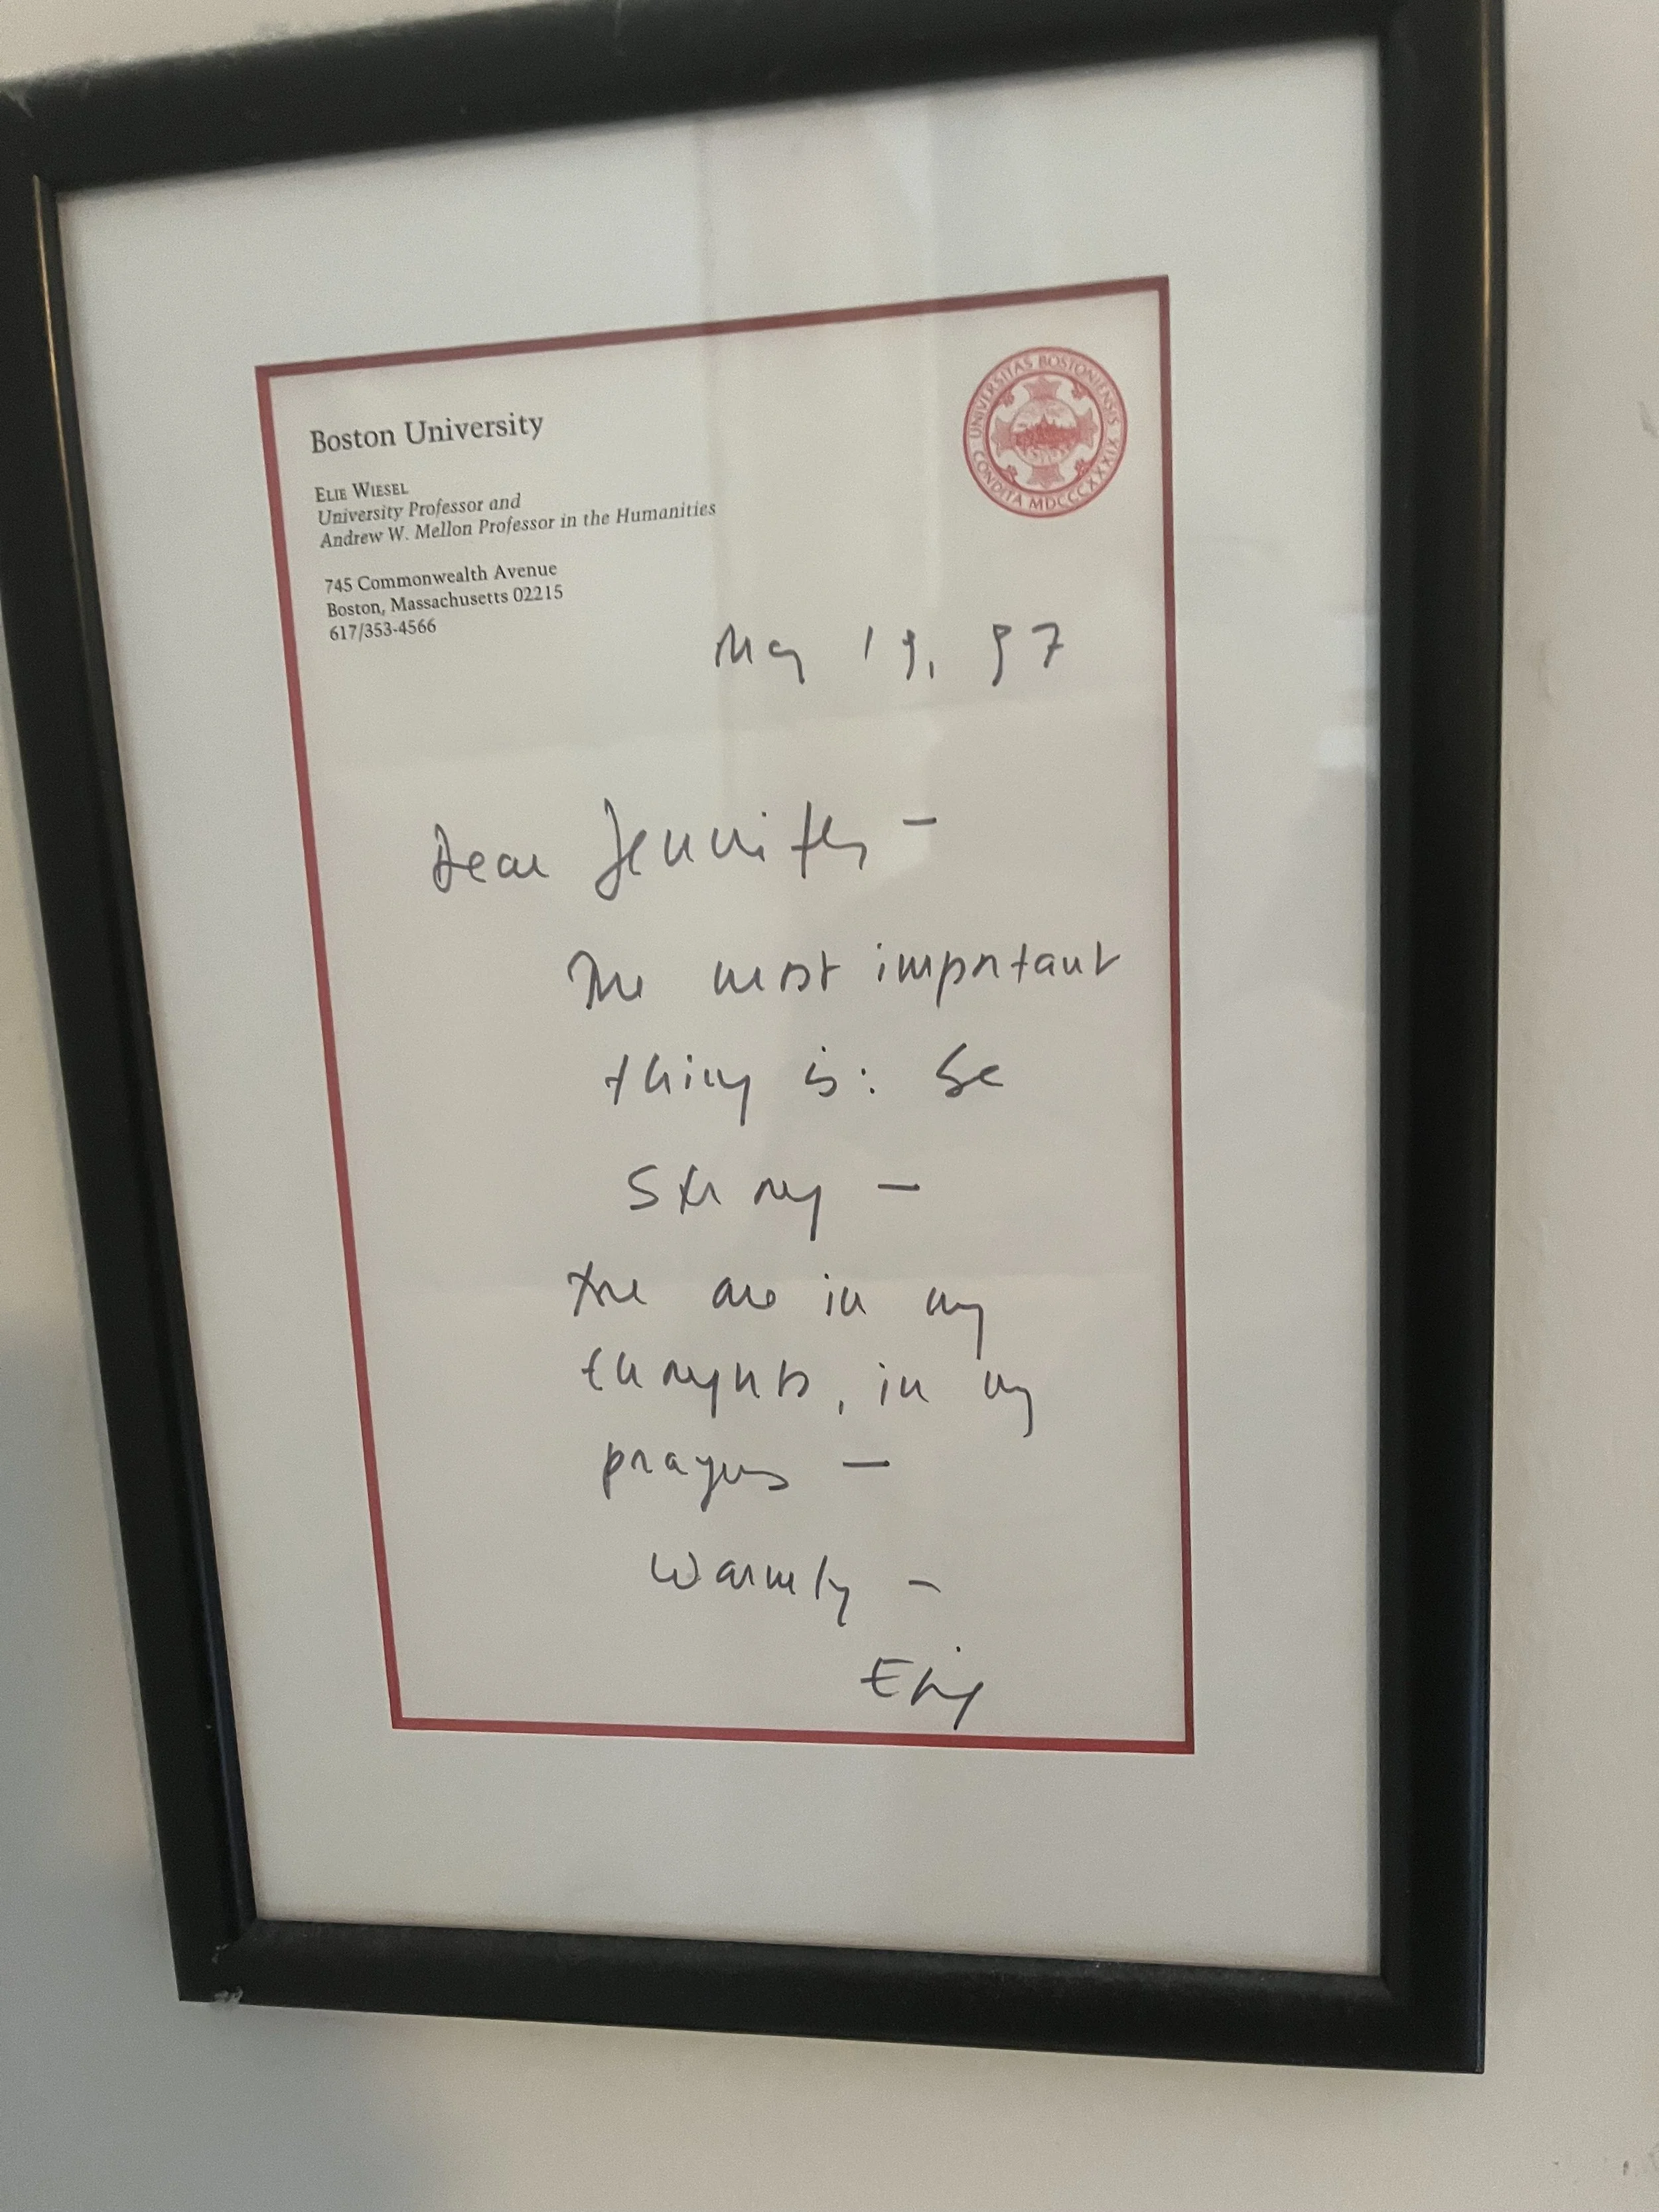 Boston University
UNIVERSITAS BOSTONIENSIS
CONDITA MDCCCXXXIX
ELIE WIESEL
University Professor and
Andrew W. Mellon Professor in the Humanities
745 Commonwealth Avenue
Boston, Massachusetts 02215
617/353-4566
May 19, 97
Dear Jennifer –
The most important
thing is: be
strong –
are in my
thoughts, in my
prayers –
Warmly –
Elie